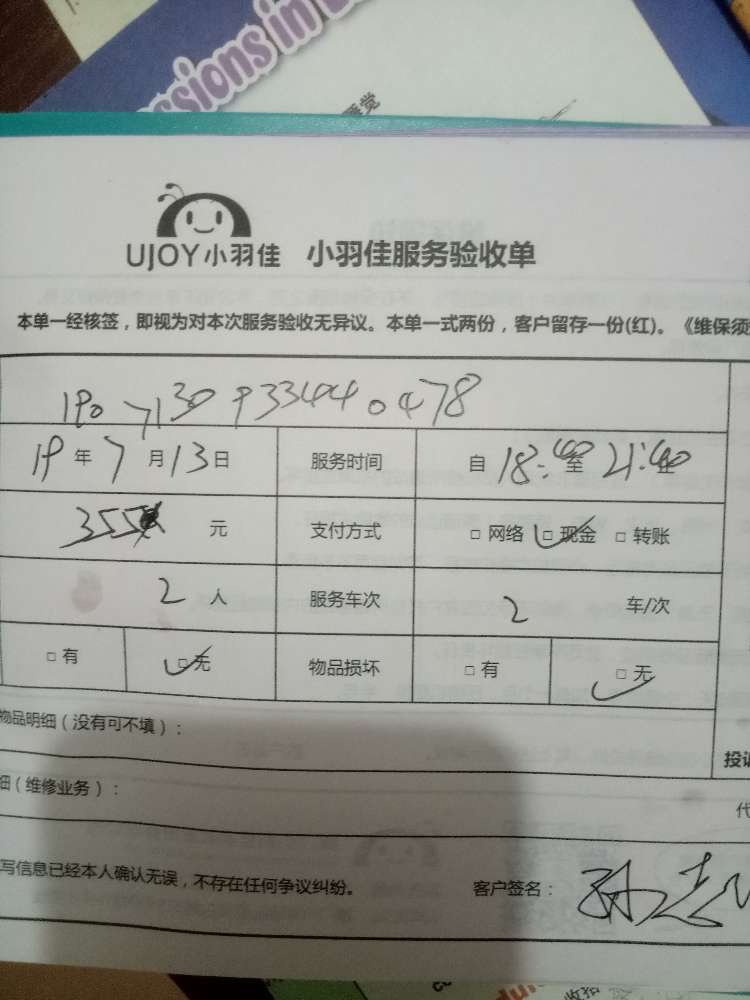 ssions in
UJOY小羽佳 小羽佳服务验收单
本单一经核签，即视为对本次服务验收无异议。本单一式两份，客户留存一份(红)。《维保须
1907130933440478
19年7月13日 服务时间 自18:40至21:40
355 元 支付方式 □网络 □现金 □转账
2人 服务车次 2 车/次
□有 □无 物品损坏 □有 □无
物品明细（没有可不填）：
投诉
细（维修业务）：
代
写信息已经本人确认无误，不存在任何争议纠纷。 客户签名：孙志